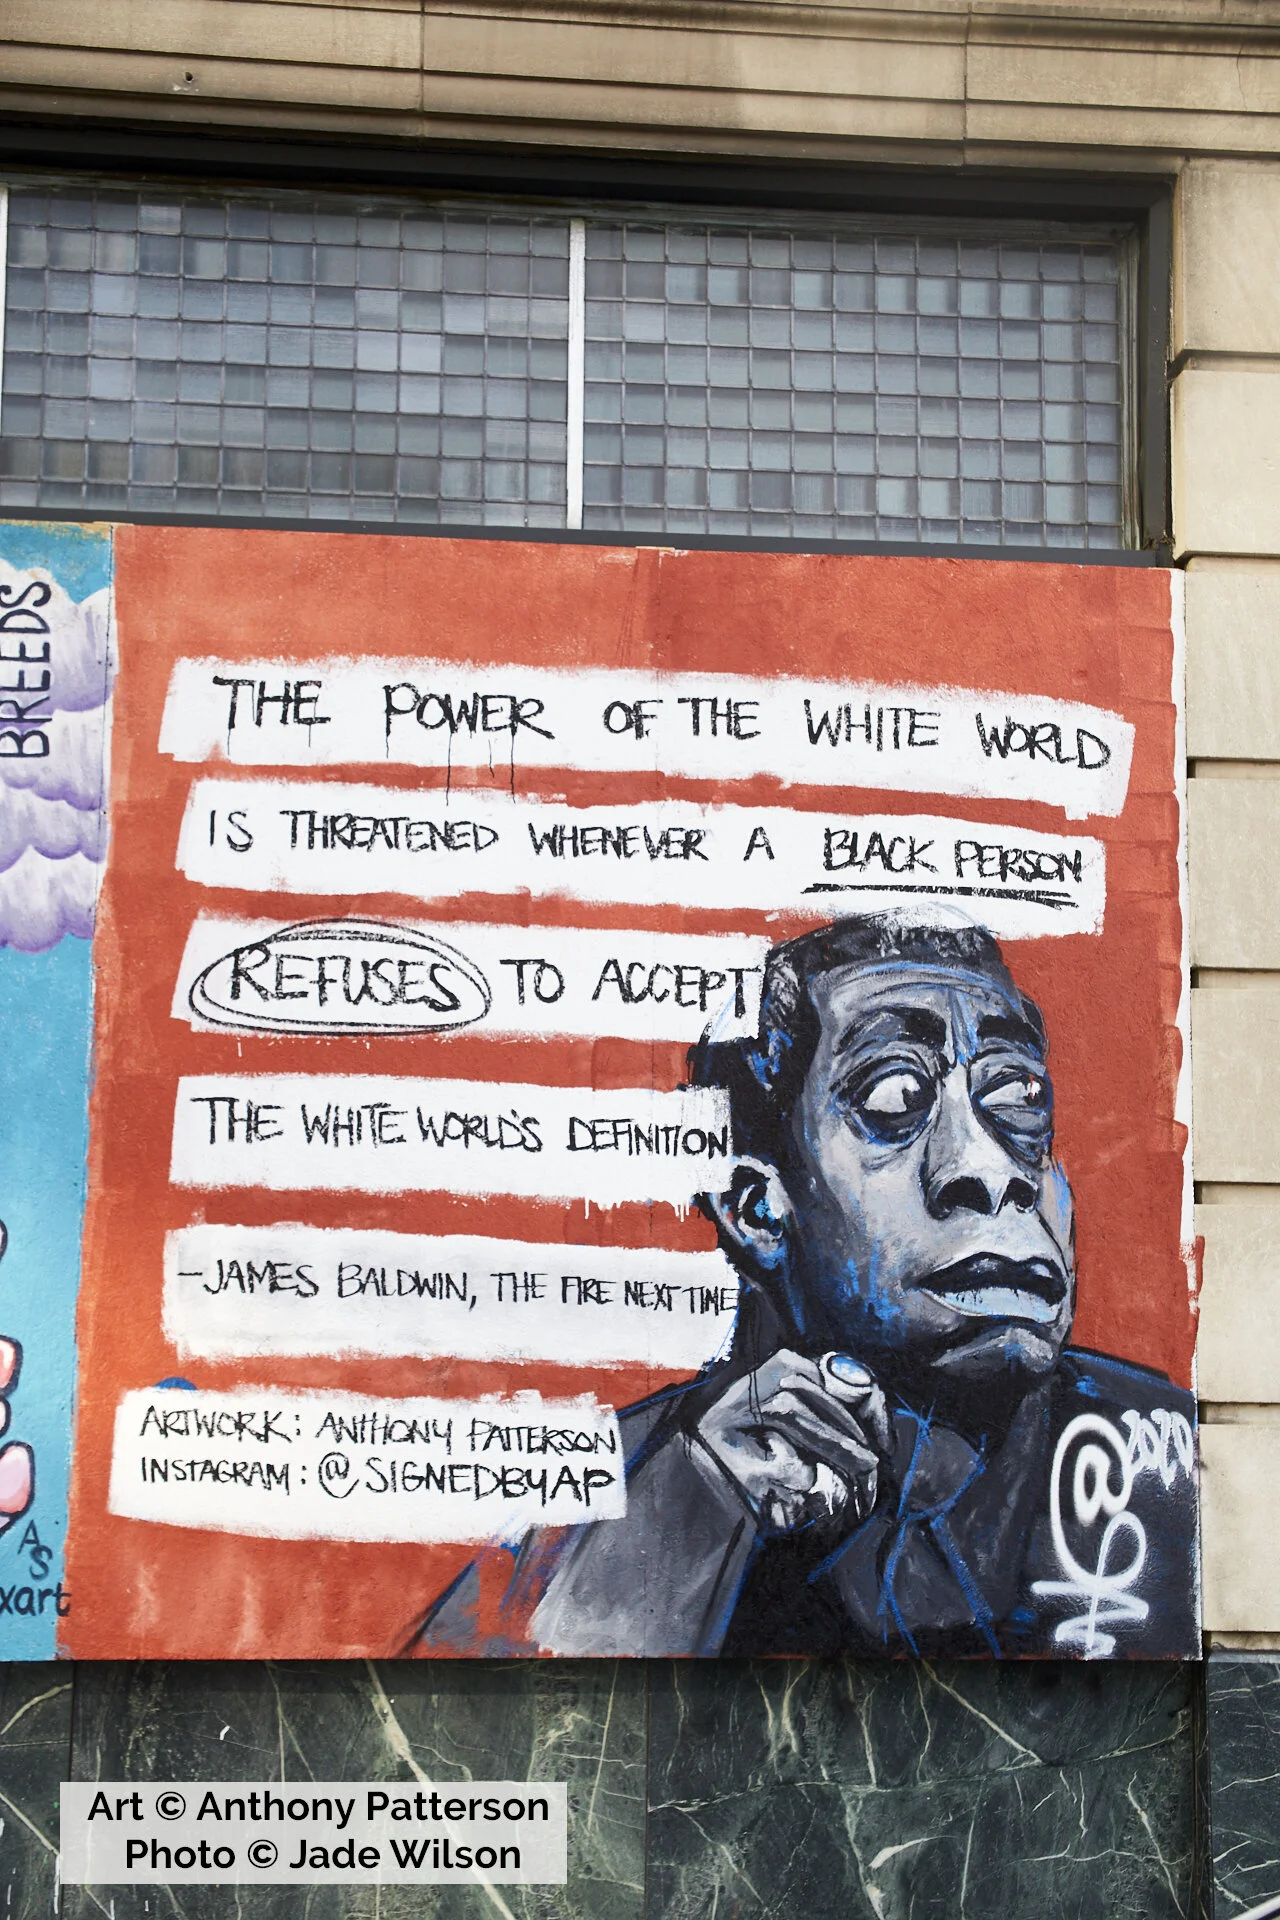 BREEDS
THE POWER OF THE WHITE WORLD
IS THREATENED WHENEVER A BLACK PERSON
REFUSES TO ACCEPT
THE WHITE WORLD'S DEFINITION
-JAMES BALDWIN, THE FIRE NEXT TIME
ARTWORK: ANTHONY PATTERSON
INSTAGRAM: @SIGNEDBYAP
@2020
AS
xart
Art © Anthony Patterson
Photo © Jade Wilson